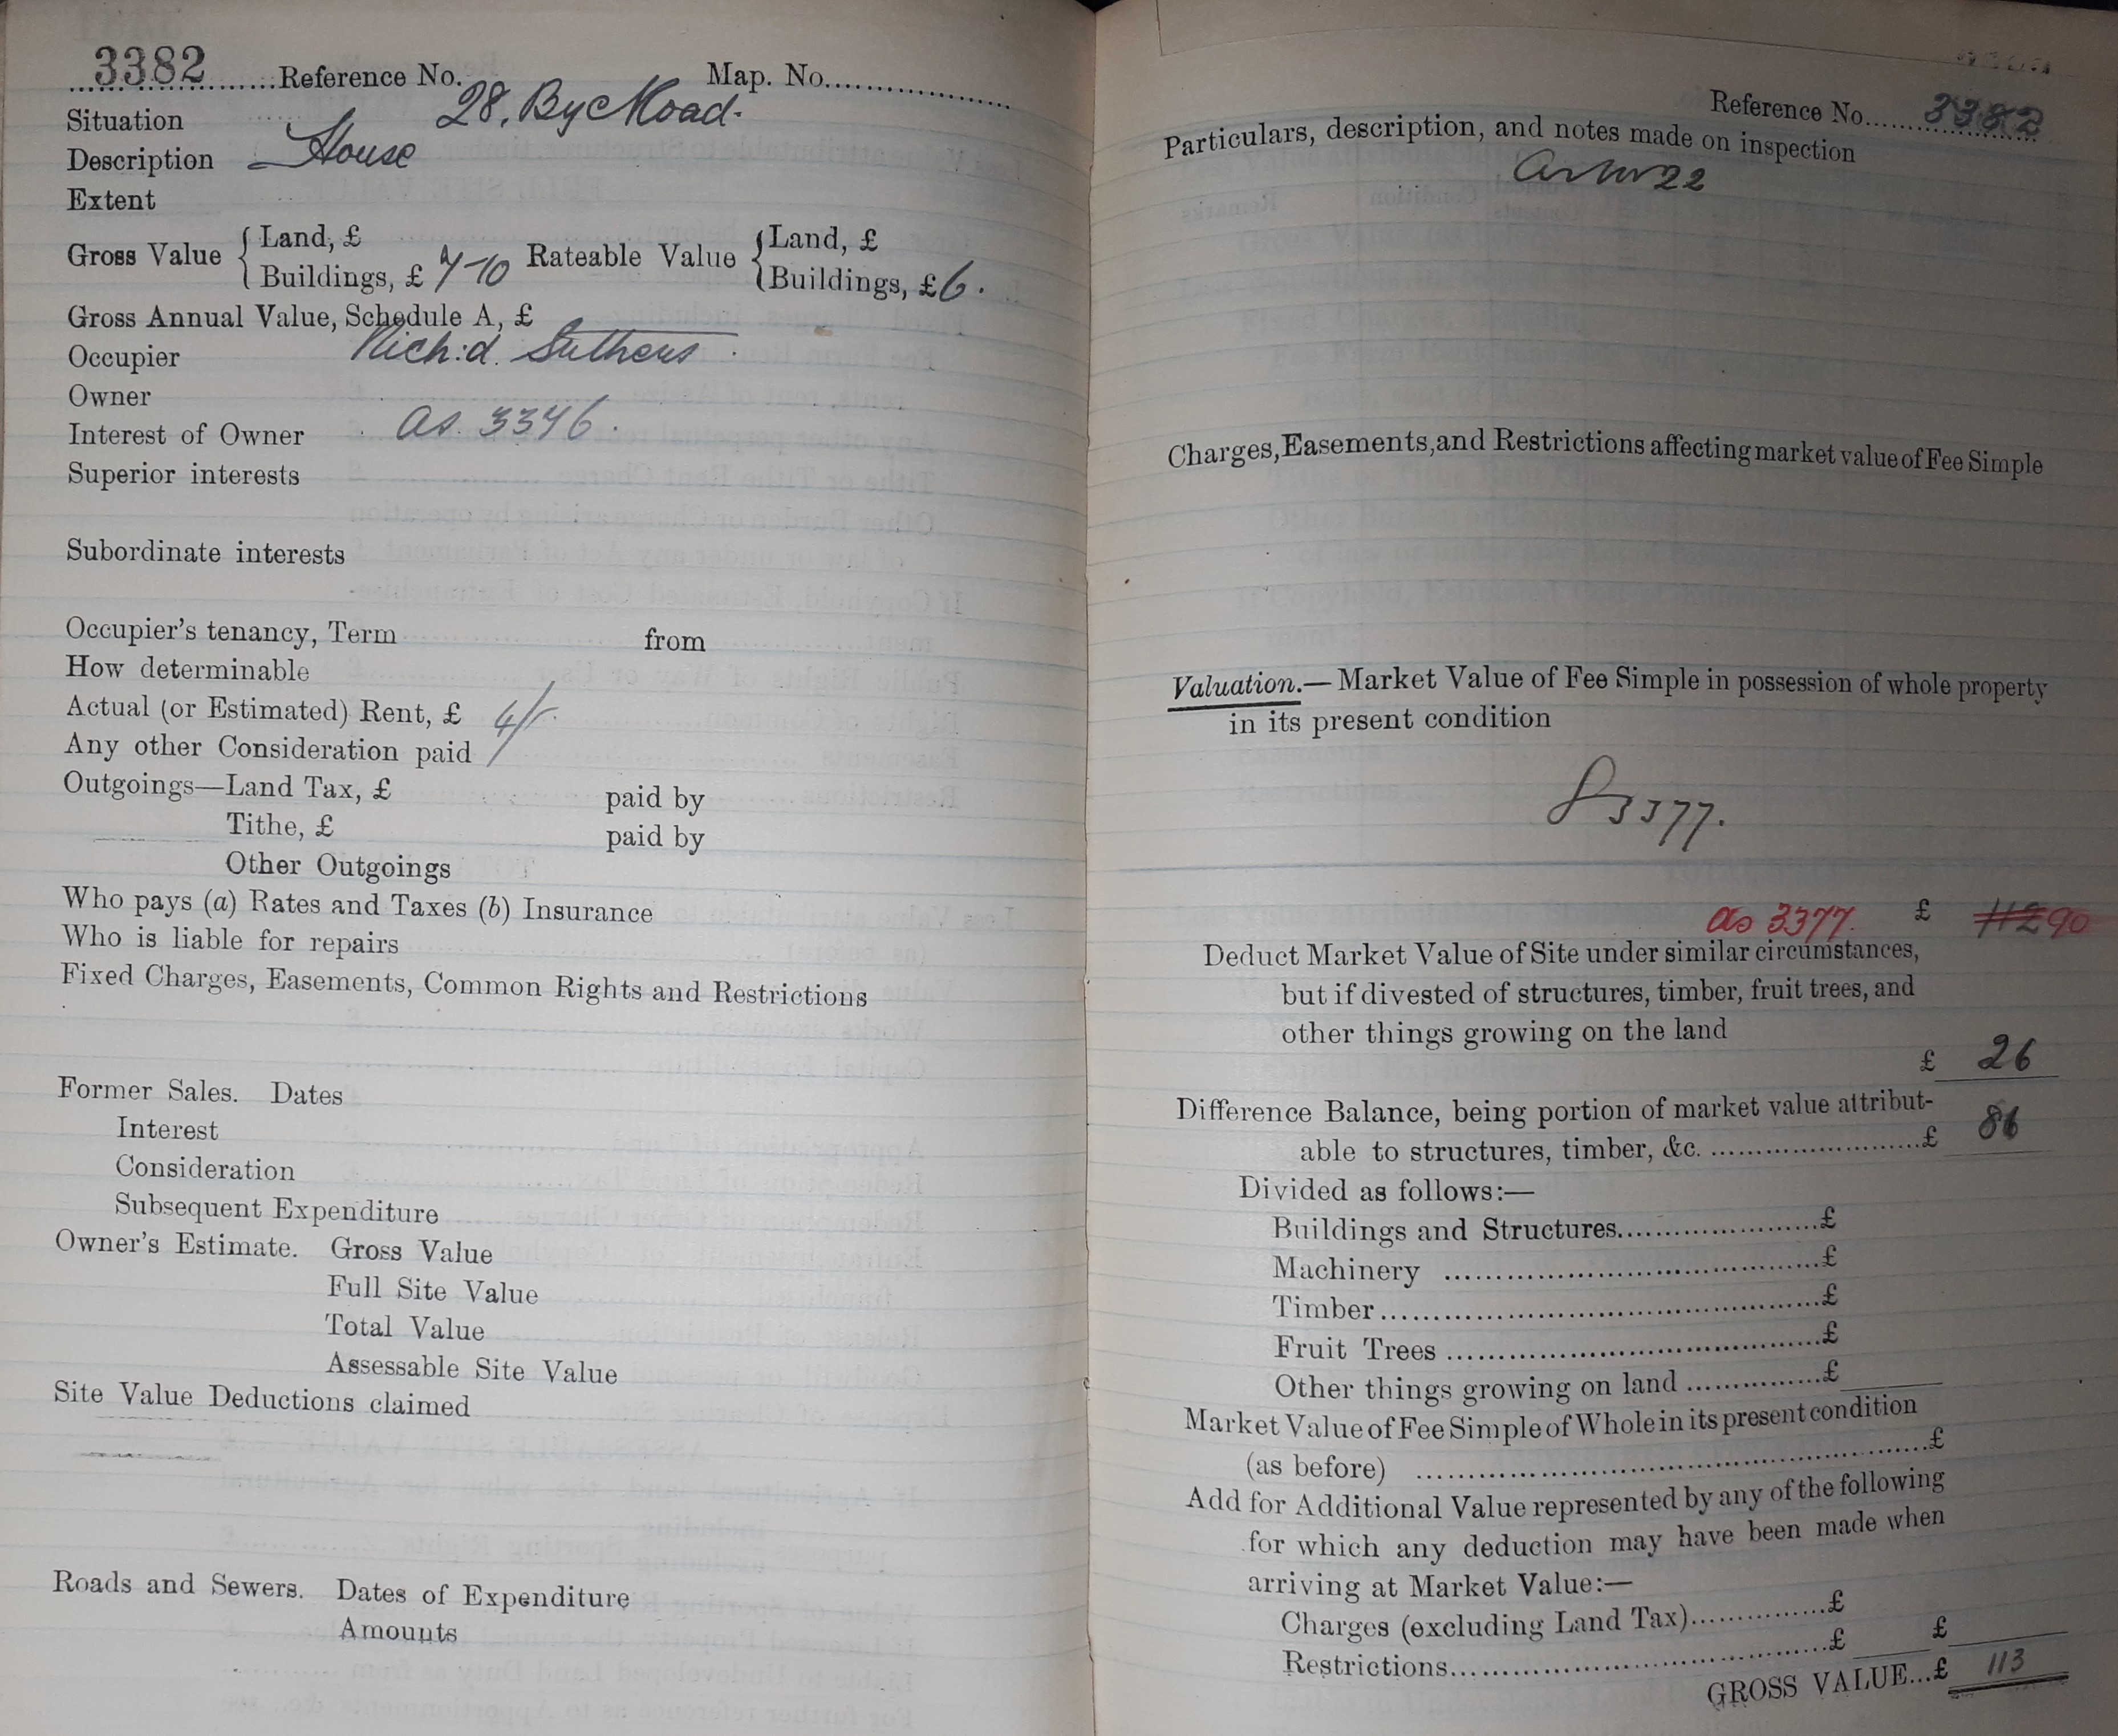 3382 Reference No. Map. No.
Situation 28,
Description House
Extent
Gross Value { Land, £ Rateable Value { Land, £
Buildings, £ 7-10 Buildings, £ 6.
Gross Annual Value, Schedule A, £
Occupier Rich:d. Suthers.
Owner
Interest of Owner as 3346.
Superior interests
Subordinate interests
Occupier's tenancy, Term from
How determinable
Actual (or Estimated) Rent, £ 4/-
Any other Consideration paid
Outgoings—Land Tax, £ paid by
Tithe, £ paid by
Other Outgoings
Who pays (a) Rates and Taxes (b) Insurance
Who is liable for repairs
Fixed Charges, Easements, Common Rights and Restrictions
Former Sales. Dates
Interest
Consideration
Subsequent Expenditure
Owner's Estimate. Gross Value
Full Site Value
Total Value
Assessable Site Value
Site Value Deductions claimed
Roads and Sewers. Dates of Expenditure
Amounts
Reference No. 3382
Particulars, description, and notes made on inspection
Charges, Easements, and Restrictions affecting market value of Fee Simple
Valuation.— Market Value of Fee Simple in possession of whole property
in its present condition
3377.
as 3377. £ 112 90
Deduct Market Value of Site under similar circumstances,
but if divested of structures, timber, fruit trees, and
other things growing on the land
£ 26
Difference Balance, being portion of market value attribut-
able to structures, timber, &c. £ 86
Divided as follows:—
Buildings and Structures £
Machinery £
Timber £
Fruit Trees £
Other things growing on land £
Market Value of Fee Simple of Whole in its present condition
(as before) £
Add for Additional Value represented by any of the following
for which any deduction may have been made when
arriving at Market Value:—
Charges (excluding Land Tax) £
Restrictions £ £
GROSS VALUE...£ 113